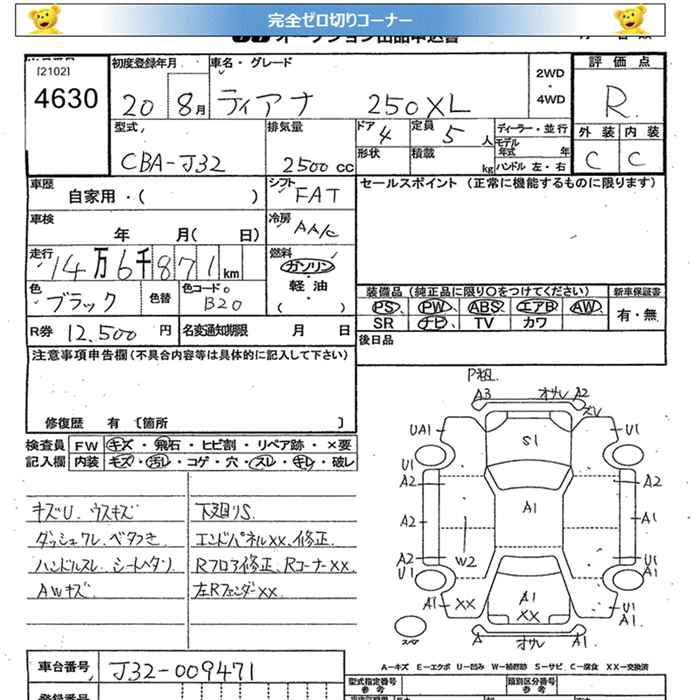 完全ゼロ切りコーナー
オークション出品申込書
[2102]
4630
初度登録年月
20 8月
車名・グレード
ティアナ 250XL
2WD
・
4WD
評価点
R
型式
CBA-J32
排気量
2500 cc
ドア 4
定員 5 人
形状
積載 kg
ディーラー・並行
モデル年式 年
ハンドル 左・右
外装 内装
C C
車歴
自家用・( )
シフト
FAT
セールスポイント (正常に機能するものに限ります)
車検
年 月( 日)
冷房
AA/C
走行
14万6千871km
燃料
ガソリン・
軽油・
( )
色
ブラック
色替
色コード
B20
装備品 (純正品に限り○をつけてください)
新車保証書
PS PW ABS エアB AW
SR ナビ TV カワ
有・無
R券 12,500 円
名変通知期限 月 日
後日品
注意事項申告欄(不具合内容等は具体的に記入して下さい)
修復歴 有 〔箇所 〕
検査員
記入欄
FW キズ・飛石・ヒビ割・リペア跡・×要
内装 キズ・汚レ・コゲ・穴・スレ・キレ・破レ
キズU ウスキズ
ダッシュワレ、ベタつき
ハンドルスレ シートヘタリ
AWキズ
下廻りS
エンドパネルXX、修正
Rフロア修正、RコーナーXX
左RフェンダーXX
P粗
A3 オサレ A2
ズレ
UA1 S1 U1
U1 U1
A2 A2
A1
A2 A1
W2
A2 A2
U1 U1 A1
A1 XX A1 XX U1 A1
スペア
A オサレ A1
A-キズ E-エクボ U-凹み W-補修跡 S-サビ C-腐食 XX-交換済
車台番号
J32-009471
型式指定番号
参考
類別区分番号
参考
登録番号